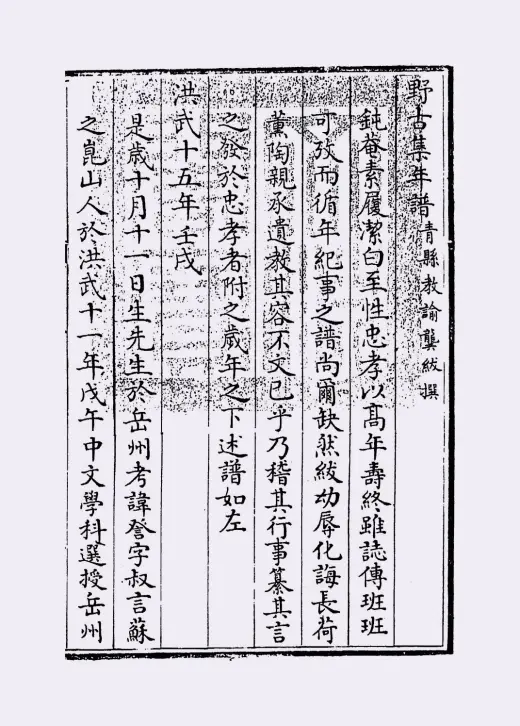 野古集年譜 青縣教諭龔紱撰
鈍菴素履潔白至性忠孝以高年壽終雖誌傳班班
可攷而循年紀事之譜尚爾缺然紱幼辱化誨長荷
薰陶親承遺教其容不文已乎乃稽其行事纂其言
之發於忠孝者附之歲年之下述譜如左
洪武十五年壬戌
是歲十月十一日生先生於岳州考諱詧字叔言蘇
之崑山人於洪武十一年戊午中文學科選授岳州